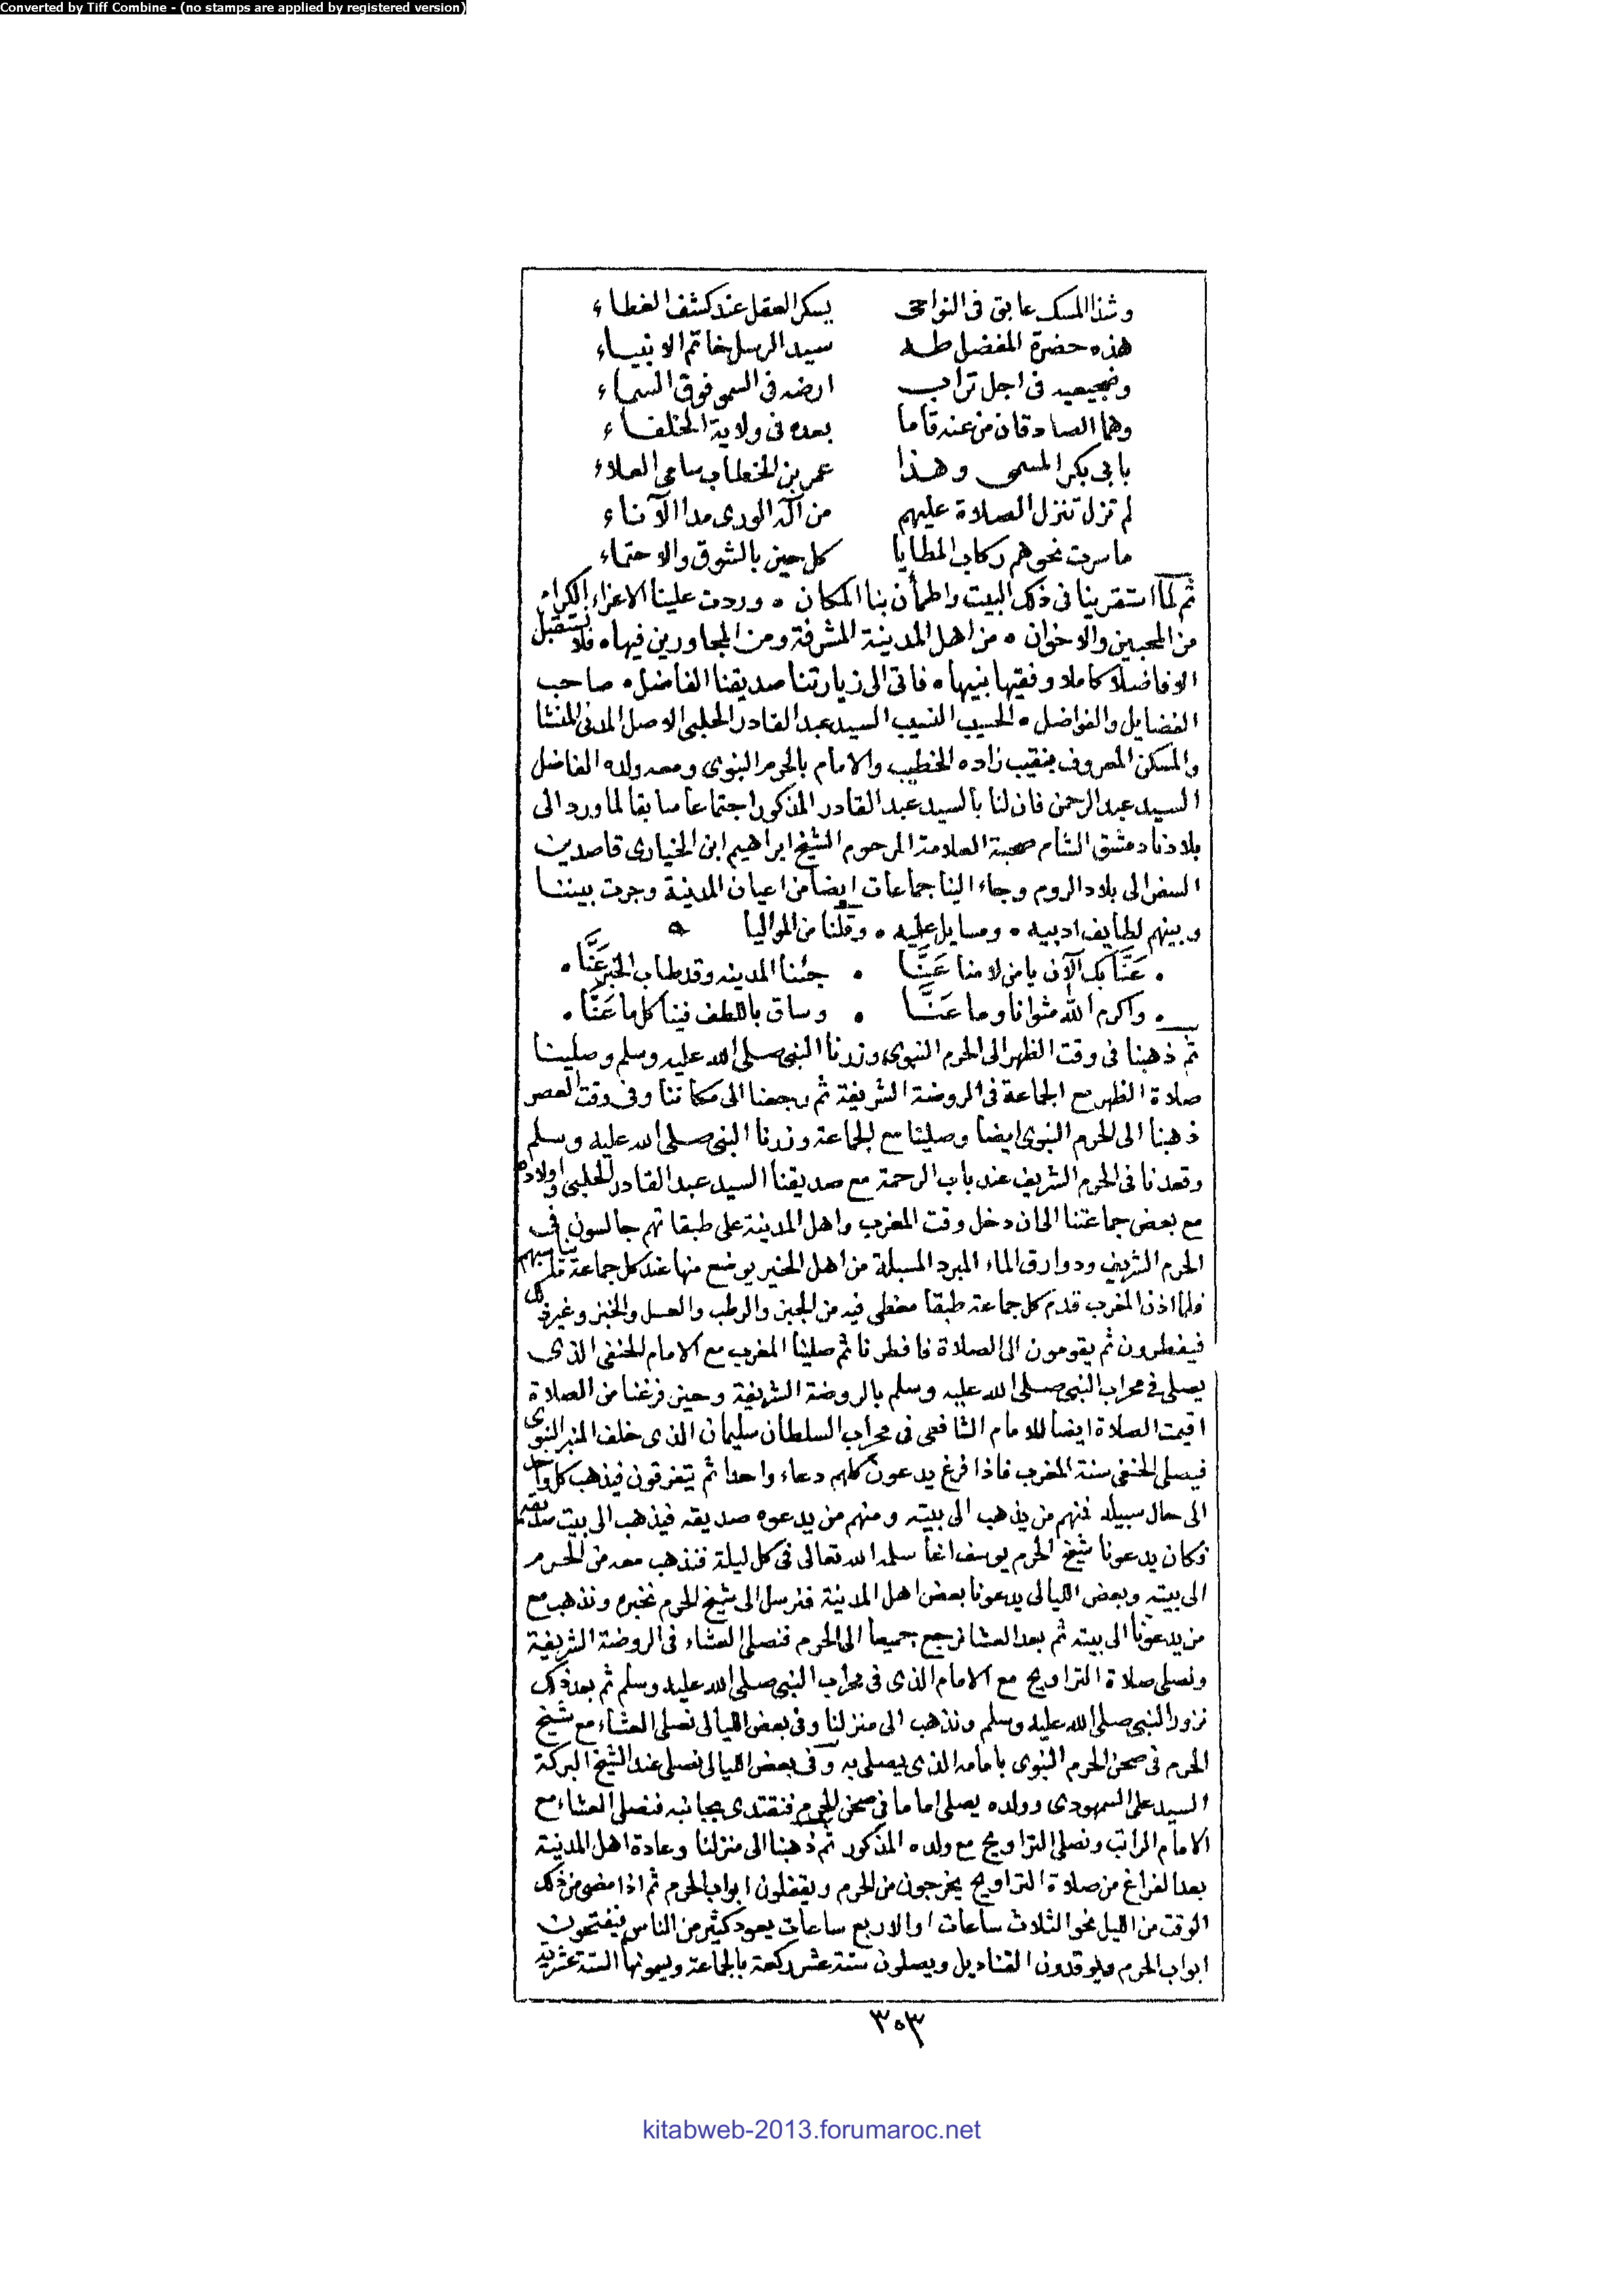 Converted by Tiff Combine - (no stamps are applied by registered version)
وشذا المسك عابق فى النواحى يسكر العقل عند كشف الغطاء
هذه حضرة المفضل طه سيد الرسل خاتم الانبياء
وضجيعيه فى اجل تراب ارضه فى السمو فوق السماء
وهما الصادقان من عند قاما بعده فى ولاية الخلفاء
بابى بكر المسمى وهذا عمر بن الخطاب سامى العلاء
لم تزل تنزل الصلاة عليهم من اله الورى مدا الآناء
ما سرت نحوهم ركاب المطايا كل حين بالشوق والاحتماء
ثم لما استقر بنا فى ذلك البيت واطمأن بنا المكان ٠ وردت علينا الاعزاء الكرام
من المحبين والاخوان ٠ من اهل المدينة المشرفة ومن المجاورين فيها ٠ فلا نستقبل
الا فاضلا كاملا وفقيها نبيها ٠ فاتى الى زيارتنا صديقنا الفاضل ٠ صاحب
الفضايل والفواضل ٠ الحسيب النسيب السيد عبد القادر الحلبى الاصل المدنى المنشا
والمسكن المعروف بنقيب زاده الخطيب والامام بالحرم النبوى ومعه ولده الفاضل
السيد عبد الرحمن فان لنا بالسيد عبد القادر المذكور اجتماعا سابقا لما ورد الى
بلادنا دمشق الشام صحبة العلامة المرحوم الشيخ ابراهيم ابن الخيارى قاصدين
السفر الى بلاد الروم وجاء الينا جماعات ايضا من اعيان المدينة وجرت بيننا
وبينهم لطايف ادبيه ٠ ومسايل علميه ٠ وقلنا من المواليا
٠ عَنَّا بك الآن يا من لامنا عَنَّا ٠ جئنا المدينه وقد طاب الخبر عَنَّا ٠
٠ واكرم الله مثوانا وما عَنَّا ٠ وساق باللطف فينا كل ما عَنَّا ٠
ثم ذهبنا فى وقت الظهر الى الحرم النبوى وزرنا النبى صلى الله عليه وسلم وصلينا
صلاة الظهر مع الجماعة فى الروضة الشريفة ثم رجعنا الى مكاننا وفى وقت العصر
ذهبنا الى الحرم النبوى ايضا وصلينا مع الجماعة وزرنا النبى صلى الله عليه وسلم
وقعدنا فى الحرم الشريف عند باب الرحمة مع صديقنا السيد عبد القادر الحلبى واولاده
مع بعض جماعتنا الى ان دخل وقت المغرب واهل المدينة على طبقاتهم جالسون فى
الحرم الشريف ودوارق الماء المبرد المسبلة من اهل الخير يوضع منها عند كل جماعة ما يناسبهم
فلما اذن المغرب قدم كل جماعة طبقا مغطى فيه من الجبن والرطب والعسل والخبز وغير ذلك
فيفطرون ثم يقومون الى الصلاة فافطرنا ثم صلينا المغرب مع الامام الحنفى الذى
يصلى فى محراب النبى صلى الله عليه وسلم بالروضة الشريفة وحين فرغنا من الصلاة
اقيمت الصلاة ايضا للامام الشافعى فى محراب السلطان سليمان الذى خلف المنبر النبوى
فيصلى الحنفى سنة المغرب فاذا فرغ يدعون كلهم دعاء واحدا ثم يتفرقون فيذهب كل واحد
الى حال سبيله فمنهم من يذهب الى بيته ومنهم من يدعوه صديقه فيذهب الى بيت صديقه
فكان يدعونا شيخ الحرم يوسف اغا سلمه الله تعالى فى كل ليلة فنذهب معه من الحرم
الى بيته وبعض الليالى يدعونا بعض اهل المدينة فنرسل الى شيخ الحرم نخبره ونذهب مع
من يدعونا الى بيته ثم بعد العشا نرجع جميعا الى الحرم فنصلى العشاء فى الروضة الشريفة
ونصلى صلاة التراويح مع الامام الذى فى محراب النبى صلى الله عليه وسلم ثم بعد ذلك
نزور النبى صلى الله عليه وسلم ونذهب الى منزلنا وفى بعض الليالى نصلى العشاء مع شيخ
الحرم فى صحن الحرم النبوى بامامه الذى يصلى به وفى بعض الليالى نصلى عند الشيخ البركة
السيد على السمهودى وولده يصلى اماما فى صحن الحرم فنقتدى بجانبه فنصلى العشاء مع
الامام الراتب ونصلى التراويح مع ولده المذكور ثم ذهبنا الى منزلنا وعادة اهل المدينة
بعد الفراغ من صلاة التراويح يخرجون من الحرم ويقفلون ابواب الحرم ثم اذا مضى من ذلك
الوقت من الليل نحو الثلاث ساعات او الاربع ساعات يعود كثير من الناس فيفتحون
ابواب الحرم ويوقدون القناديل ويصلون ستة عشر ركعة بالجماعة ويسمونها الستة عشرية
٣٥٣
kitabweb-2013.forumaroc.net